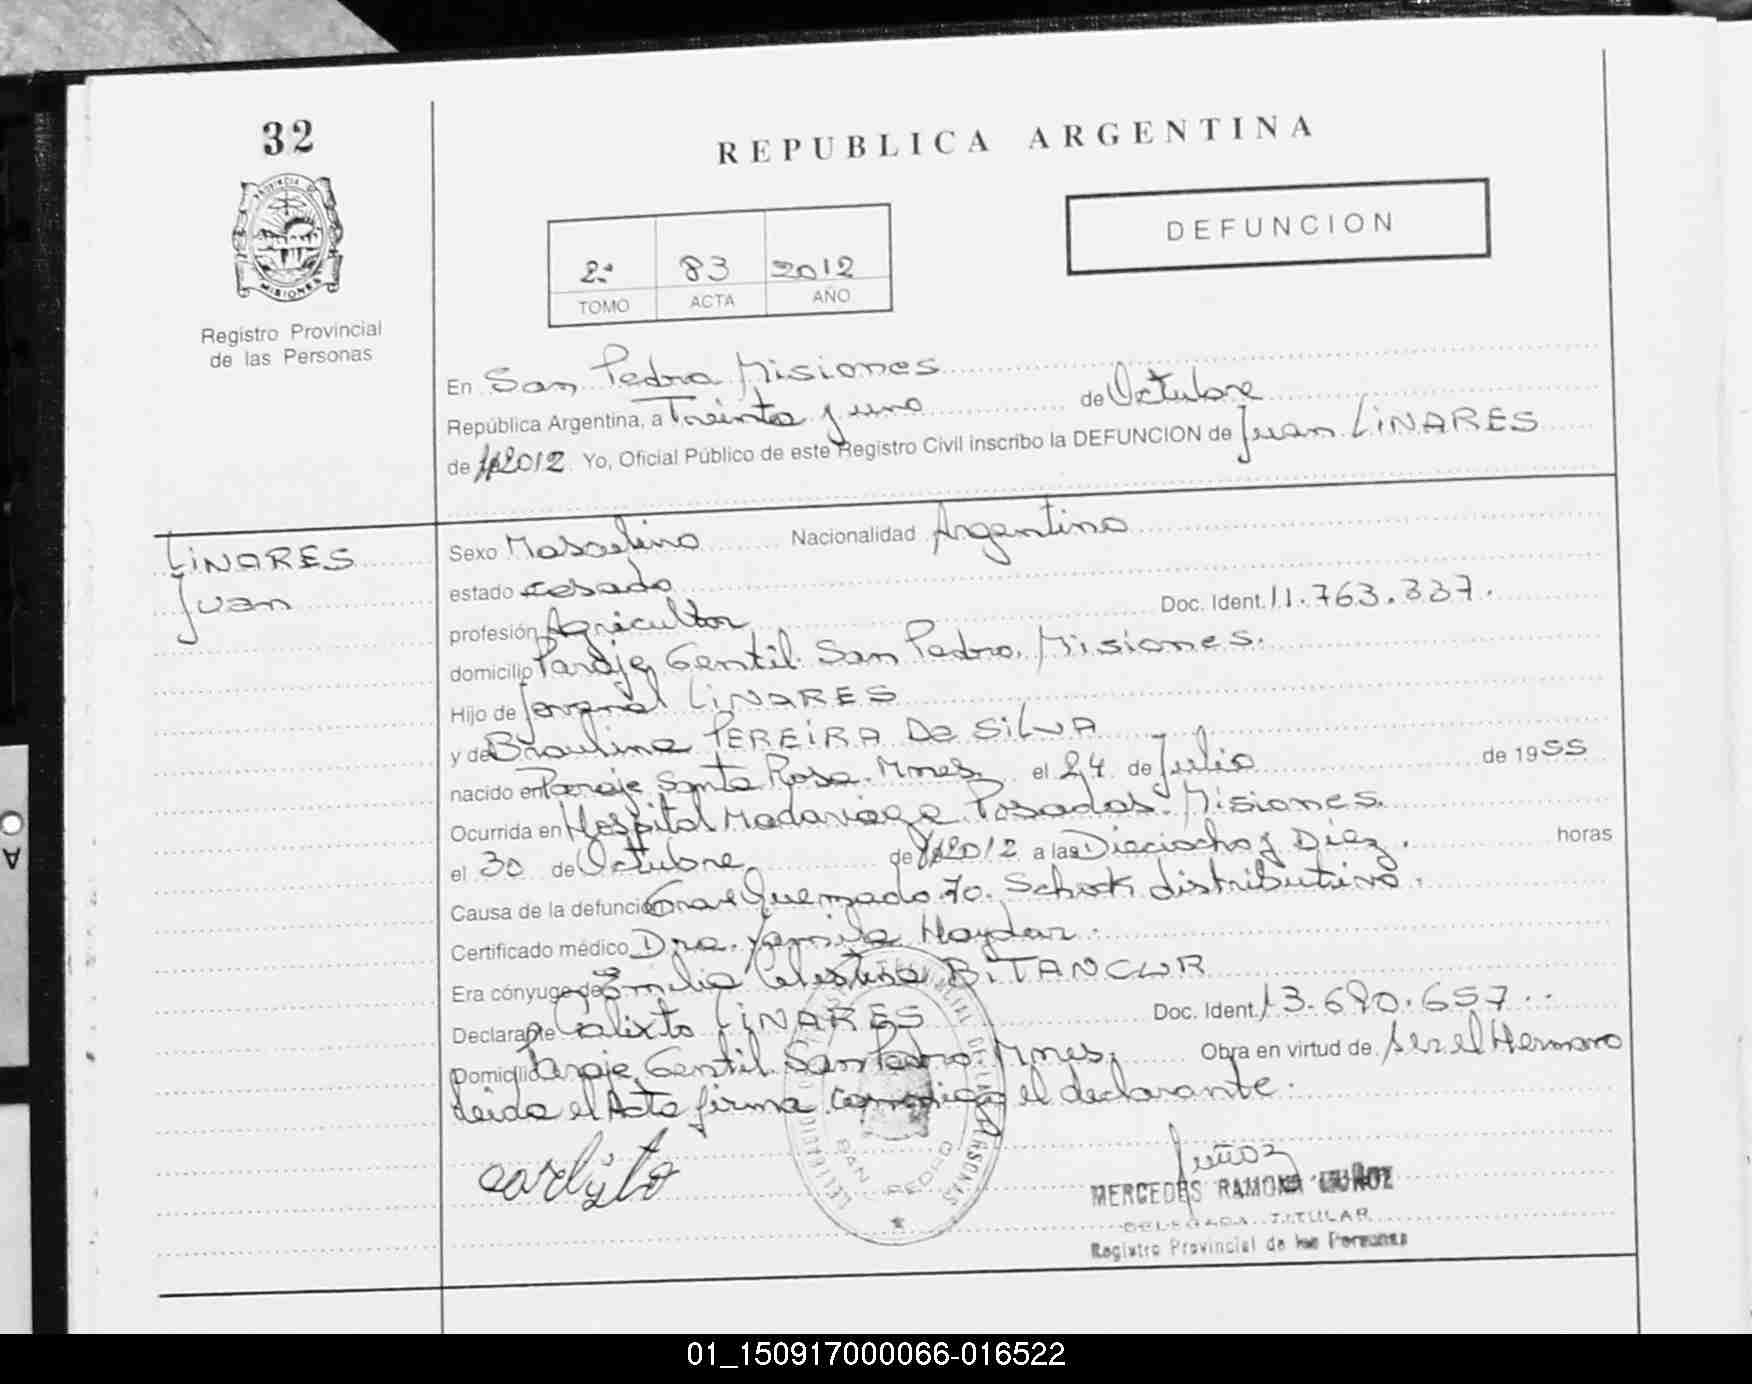 32
PROVINCIA DE
MISIONES
Registro Provincial
de las Personas
REPUBLICA ARGENTINA
DEFUNCION
2º 83 2012
TOMO ACTA AÑO
En San Pedro Misiones
República Argentina, a Treinta y uno de Octubre
de 2012. Yo, Oficial Público de este Registro Civil inscribo la DEFUNCION de Juan LiNARES
LiNARES
Juan
Sexo Masculino Nacionalidad Argentina
estado casado
profesión Agricultor Doc. Ident. 11.763.337.
domicilio Paraje Gentil. San Pedro. Misiones.
Hijo de LiNARES
y de Braulina PEREiRA De SiLVA
nacido en Paraje Santa Rosa. Mnes el 24 de Julio de 1955
Ocurrida en Hospital Madariaga Posadas. Misiones.
el 30 de Octubre de 2012 a las Dieciocho y Diez. horas
Causa de la defunción Gran Quemado 70. Schok distributivo.
Certificado médico Dra. Yamila Haydar.
Era cónyuge de Emilia Celestina BiTANCUR
Declarante Calixto LiNARES Doc. Ident. 13.690.657..
Domicilio Paraje Gentil. San Pedro. Mnes. Obra en virtud de Ser el Hermano
Leida el Acta firma conmigo el declarante.
SAN PEDRO
MERCEDES RAMONA MUÑOZ
DELEGADA TITULAR
Registro Provincial de las Personas
01_150917000066-016522